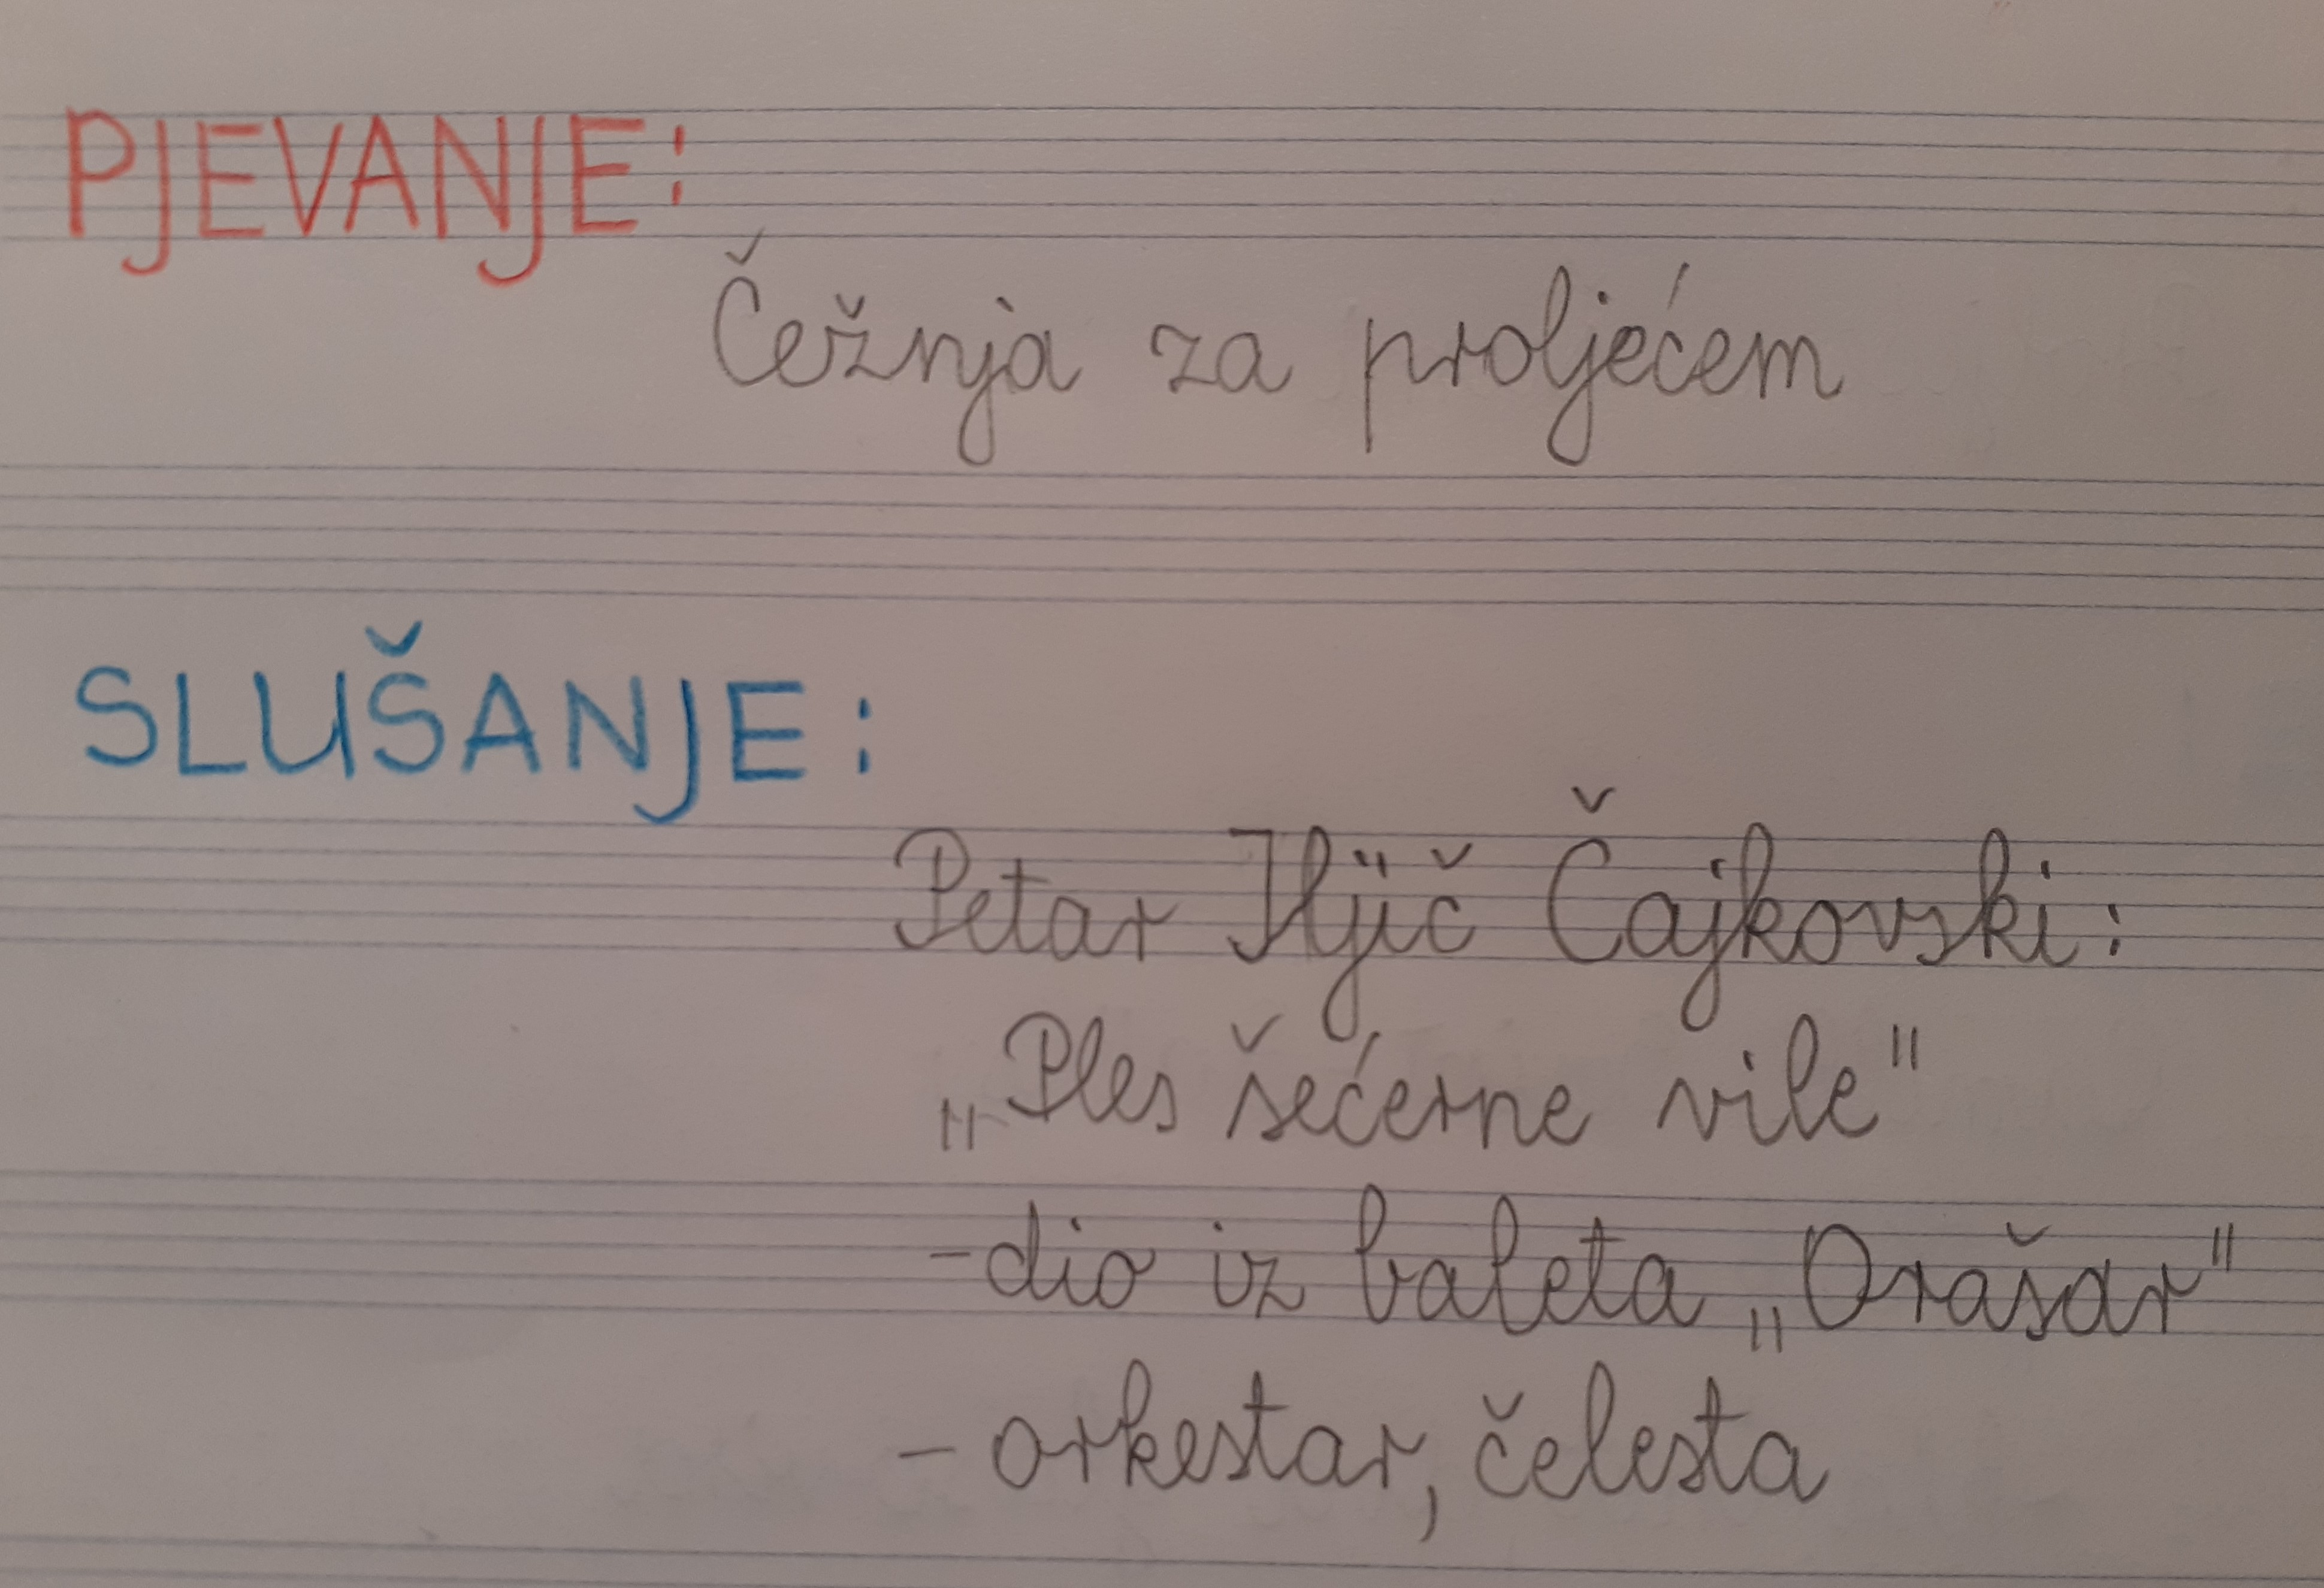 PJEVANJE:
Čežnja za proljećem
SLUŠANJE:
Petar Iljič Čajkovski:
„Ples šećerne vile"
-dio iz baleta „Orašar"
- orkestar, čelesta